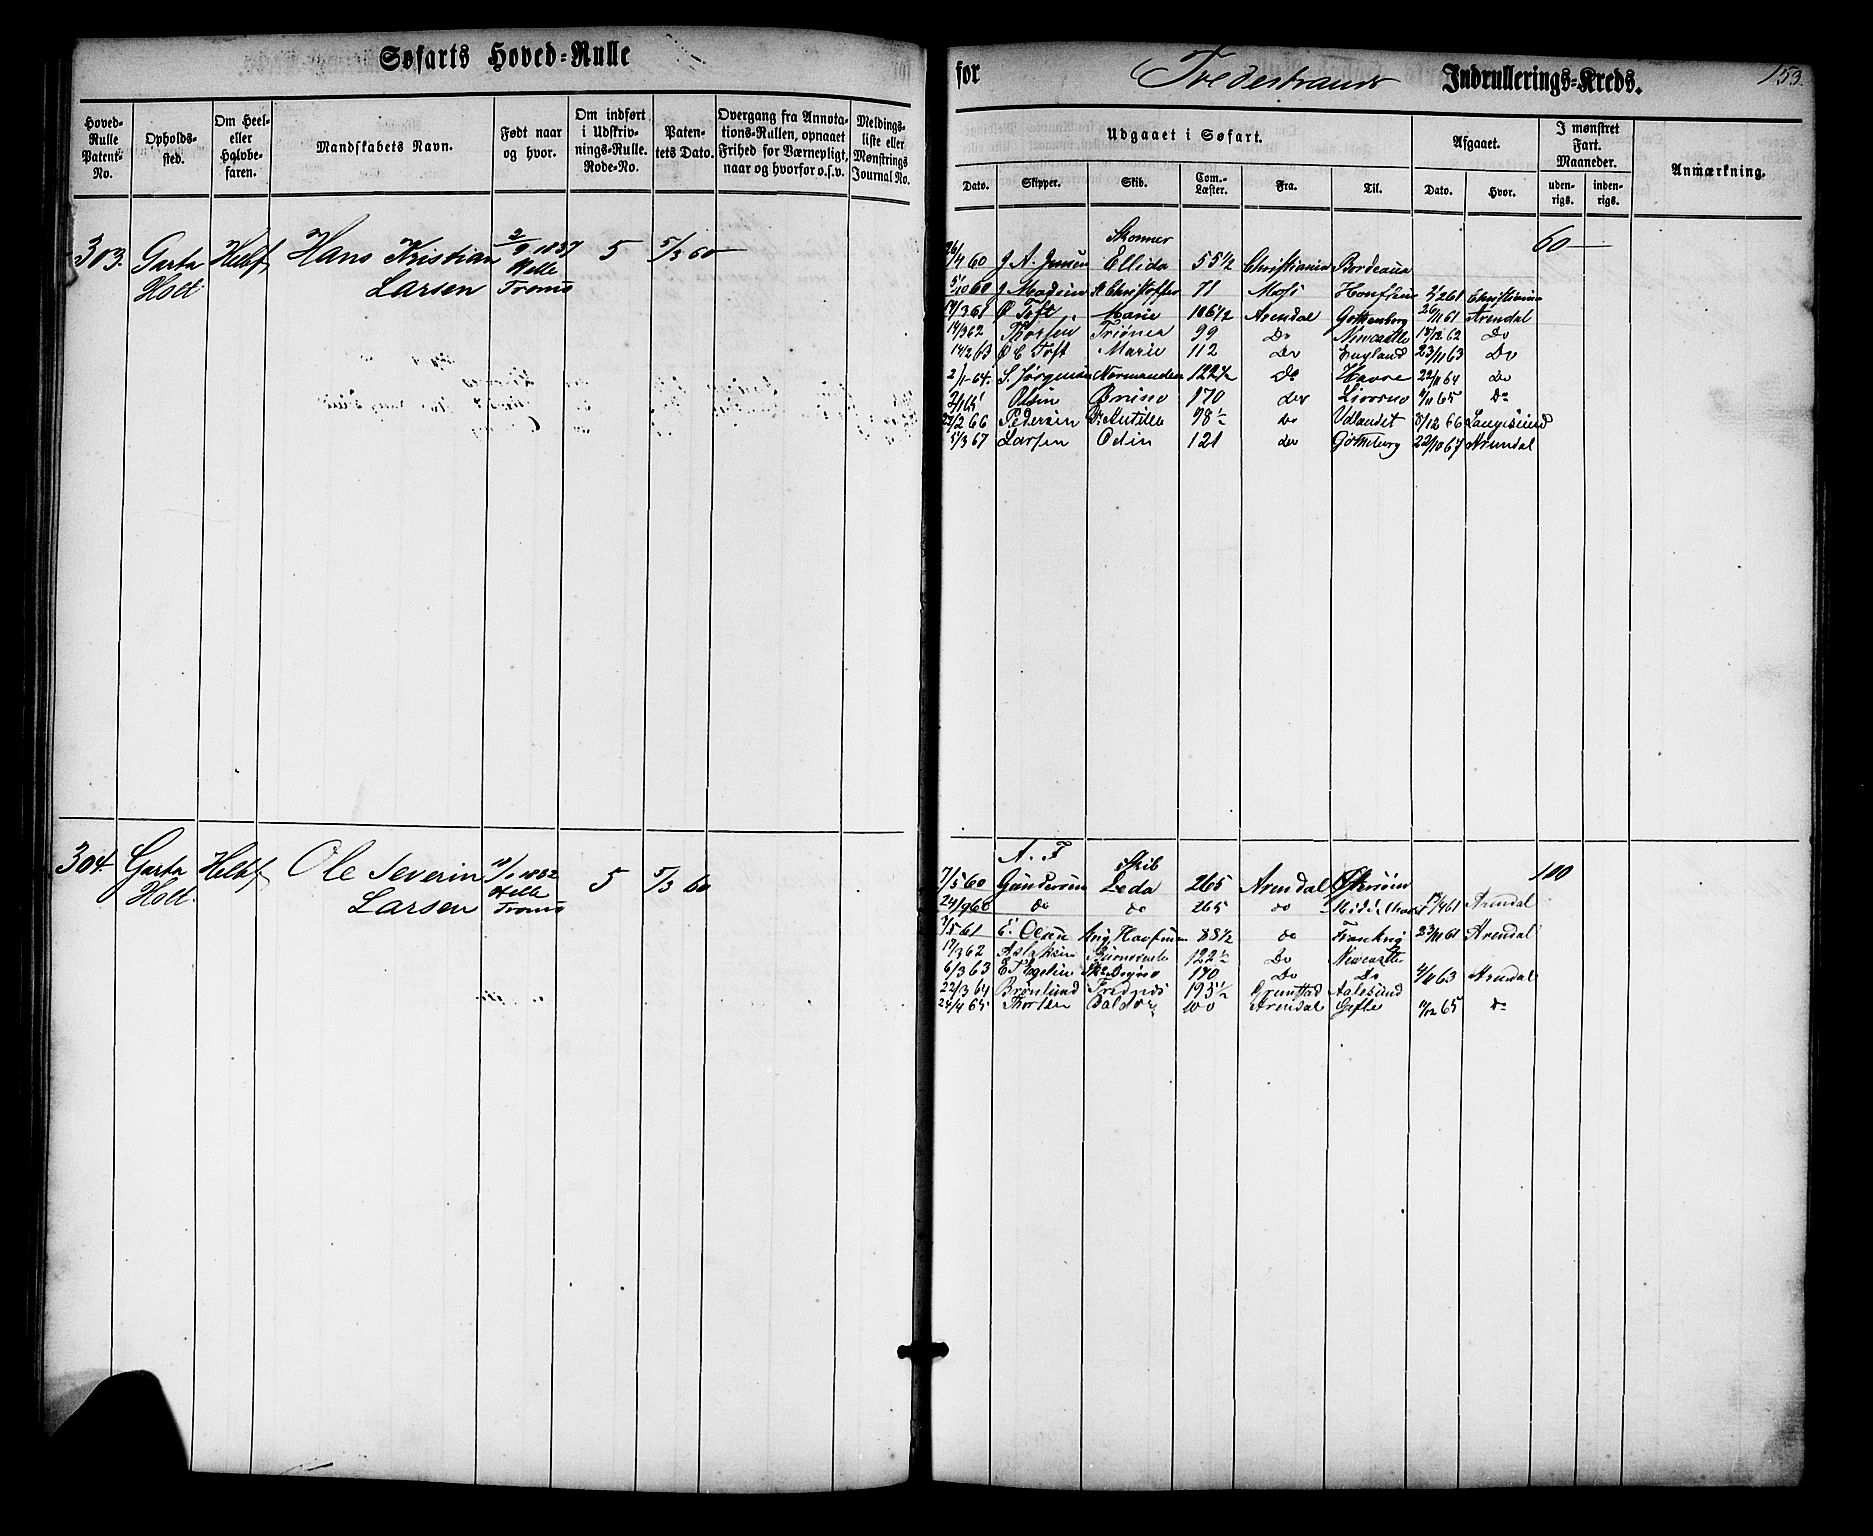 Søfarts Hoved-Rulle
Hoved-Rulle Patent-No. Opholds-sted. Om Heel- eller Halvbe-faren. Mandskabets Navn. Født naar og hvor. Om indført i Udskriv-nings-Rulle. Rode-No. Paten-tets Dato. Overgang fra Annota-tions-Rullen, opnaaet Frihed for Værnepligt, naar og hvorfor o.s.v. Meldings-liste eller Mønstrings Journal No.
303. Garta Helbf Hans Kristian 2/9 1837 5 5/3 60
Holt Larsen Helle Tromø
304. Garta Helbf Ole Severin 10/1 1832 5 5/3 60
Holt. Larsen Helle Tromø
for Tvedestrands Indrullerings-Kreds. 153.
Udgaaet i Søfart. Afgaaet. I mønstret Fart. Maaneder. Anmærkning.
Dato. Skipper. Skib. Com.-Læster. Fra. Til. Dato. Hvor. uden-rigs. inden-rigs.
Skonner 60
26/4 60 J A. Jensen Ellida 55 1/2 Christiania Bordeaux
5/10 60 J Madsen St Christoffer 71 Moss Honfleur 2/2 61 Christiania
14/3 61 Ø Toft Marie 106 1/2 Arendal Gothenborg 26/11 61 Arendal
14/3 62 Thorsen 99 Do Newcastle 18/12 62 Do
14/2 63 Ø C Toft Marie 112 Do England 23/11 63 Do
2/1 64. S. Jørgensen Normanden 122 1/2 Do Havre 22/11 64 do
Olsen 170 do Livorno 65 Do
22/2 66 Pedersen 78 1/2 do Udlandet 8/12 66 Langesund
5/3 67 Larsen Odin 121 do Gøtheborg 22/10 67 Arendal
A. F Skib 100
7/5 60 Gundersen Leda 265 Arendal
24/9 60 do do 265 do 61 Arendal
7/5 61 E. Olsen 88 1/2 do Frankrig 23/11 61 Arendal
17/3 62 Aslaksen 122 1/2 Do Newcastle
6/3 63 170 Do Do 4/11 63 Arendal
22/3 64 Brønlund 195 1/2 Grimstad Aalesund
24/4 65 Thorsen Baldur 100 Arendal Gefle 11/12 65 Do